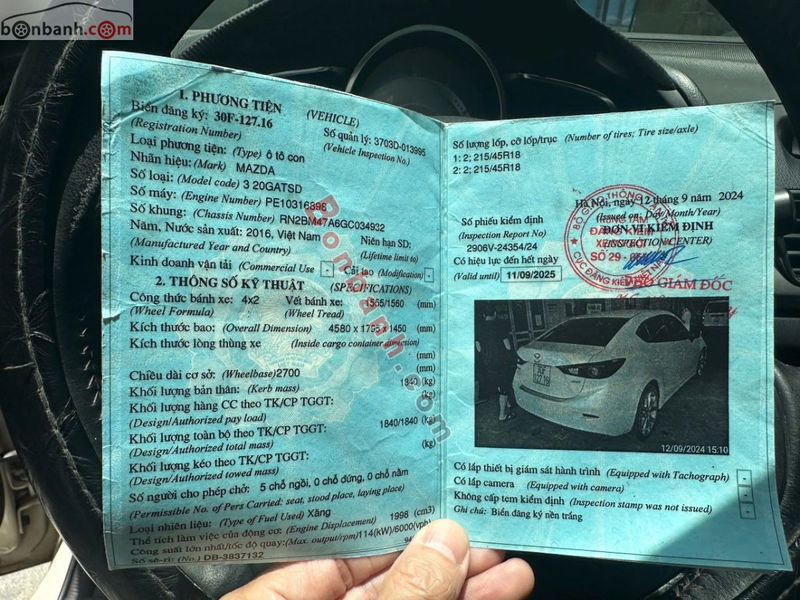 bonbanh.com
1. PHƯƠNG TIỆN (VEHICLE)
Biển đăng ký: 30F-127.16 Số quản lý: 3703D-013995
(Registration Number) (Vehicle Inspection No.)
Loại phương tiện: (Type) ô tô con
Nhãn hiệu: (Mark) MAZDA
Số loại: (Model code) 3 20GATSD
Số máy: (Engine Number) PE10316898
Số khung: (Chassis Number) RN2BM47A6GC034932
Năm, Nước sản xuất: 2016, Việt Nam Niên hạn SD:
(Manufactured Year and Country) (Lifetime limit to)
Kinh doanh vận tải (Commercial Use) - Cải tạo (Modification) -
2. THÔNG SỐ KỸ THUẬT (SPECIFICATIONS)
Công thức bánh xe: 4x2 Vết bánh xe: 1555/1560 (mm)
(Wheel Formula) (Wheel Tread)
Kích thước bao: (Overall Dimension) 4580 x 1795 x 1450 (mm)
Kích thước lòng thùng xe (Inside cargo container dimension)
(mm)
Chiều dài cơ sở: (Wheelbase) 2700 (mm)
Khối lượng bản thân: (Kerb mass) 1340 (kg)
Khối lượng hàng CC theo TK/CP TGGT: (kg)
(Design/Authorized pay load)
Khối lượng toàn bộ theo TK/CP TGGT: 1840/1840 (kg)
(Design/Authorized total mass)
Khối lượng kéo theo TK/CP TGGT: (kg)
(Design/Authorized towed mass)
Số người cho phép chở: 5 chỗ ngồi, 0 chỗ đứng, 0 chỗ nằm
(Permissible No. of Pers Carried: seat, stood place, laying place)
Loại nhiên liệu: (Type of Fuel Used) Xăng
Thể tích làm việc của động cơ: (Engine Displacement) 1998 (cm3)
Công suất lớn nhất/tốc độ quay: (Max. output/rpm) 114(kW)/6000(vph)
Số sê-ri: (No.) DB-3837132
Số lượng lốp, cỡ lốp/trục (Number of tires; Tire size/axle)
1: 2; 215/45R18
2: 2; 215/45R18
Hà Nội, ngày 12 tháng 9 năm 2024
(Issued on: Day/Month/Year)
Số phiếu kiểm định ĐƠN VỊ KIỂM ĐỊNH
(Inspection Report No) (INSPECTION CENTER)
2906V-24354/24
Có hiệu lực đến hết ngày
(Valid until) 11/09/2025
TRUNG TÂM
PHÓ GIÁM ĐỐC
Bonbanh.com
12/09/2024 15:10
Có lắp thiết bị giám sát hành trình (Equipped with Tachograph) -
Có lắp camera (Equipped with camera) -
Không cấp tem kiểm định (Inspection stamp was not issued) -
Ghi chú: Biển đăng ký nền trắng